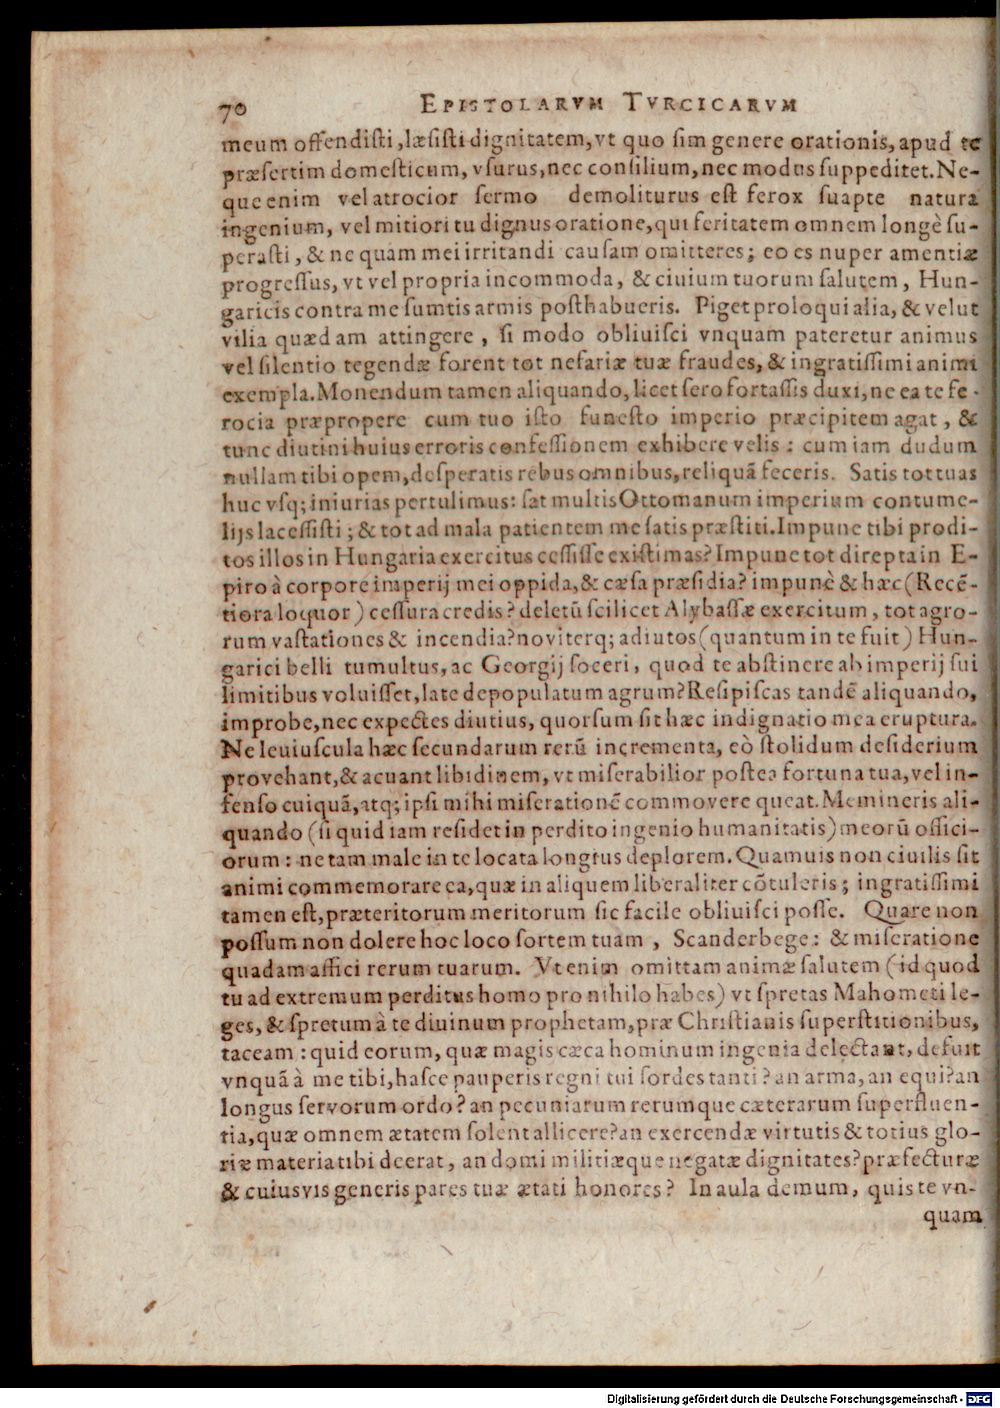 70 EPISTOLARVM TVRCICARVM
meum offendisti, læsisti dignitatem, vt quo sim genere orationis, apud te
præsertim domesticum, vsurus, nec consilium, nec modus suppeditet. Ne-
que enim vel atrocior sermo demoliturus est ferox suapte natura
ingenium, vel mitiori tu dignus oratione, qui feritatem omnem longè su-
perasti, & ne quam mei irritandi causam omitteres; eo es nuper amentiæ
progressus, vt vel propria incommoda, & ciuium tuorum salutem, Hun-
garicis contra me sumtis armis posthabueris. Piget proloqui alia, & velut
vilia quædam attingere, si modo obliuisci vnquam pateretur animus
vel silentio tegendæ forent tot nefariæ tuæ fraudes, & ingratissimi animi
exempla. Monendum tamen aliquando, licet sero fortassis duxi, ne ea te fe-
rocia præpropere cum tuo isto funesto imperio præcipitem agat, &
tunc diutini huius erroris confessionem exhibere velis: cum iam dudum
nullam tibi opem, desperatis rebus omnibus, reliquā feceris. Satis tot tuas
huc vsq; iniurias pertulimus: sat multis Ottomanum imperium contume-
lijs lacessisti; & tot ad mala patientem me satis præstiti. Impune tibi prodi-
tos illos in Hungaria exercitus cessisse existimas? Impune tot direpta in E-
piro à corpore imperij mei oppida, & cæsa præsidia? impunè & hæc (Recē-
tiora loquor) cessura credis? deletū scilicet Alybassæ exercitum, tot agro-
rum vastationes & incendia? noviterq; adiutos (quantum in te fuit) Hun-
garici belli tumultus, ac Georgij soceri, quod te abstinere ab imperij sui
limitibus voluisset, late depopulatum agrum? Resipiscas tandē aliquando,
improbe, nec expectes diutius, quorsum sit hæc indignatio mea eruptura.
Ne leuiuscula hæc secundarum rerū incrementa, eò stolidum desiderium
provehant, & acuant libidinem, vt miserabilior postea fortuna tua, vel in-
fenso cuiquā, atq; ipsi mihi miserationē commovere queat. Memineris ali-
quando (si quid iam residet in perdito ingenio humanitatis) meorū offici-
orum: ne tam male in te locata longius deplorem. Quamuis non ciuilis sit
animi commemorare ea, quæ in aliquem liberaliter cōtuleris; ingratissimi
tamen est, præteritorum meritorum sic facile obliuisci posse. Quare non
possum non dolere hoc loco sortem tuam, Scanderbege: & miseratione
quadam affici rerum tuarum. Vt enim omittam animæ salutem (id quod
tu ad extremum perditus homo pro nihilo habes) vt spretas Mahometi le-
ges, & spretum à te diuinum prophetam, præ Christianis superstitionibus,
taceam: quid eorum, quæ magis cæca hominum ingenia delectant, defuit
vnquā à me tibi, hasce pauperis regni tui sordes tanti? an arma, an equi? an
longus servorum ordo? an pecuniarum rerumque cæterarum superfluen-
tia, quæ omnem ætatem solent allicere? an exercendæ virtutis & totius glo-
riæ materia tibi deerat, an domi militiæque negatæ dignitates? præfecturæ
& cuiusvis generis pares tuæ ætati honores? In aula demum, quis te vn-
quam
Digitalisierung gefördert durch die Deutsche Forschungsgemeinschaft - DFG